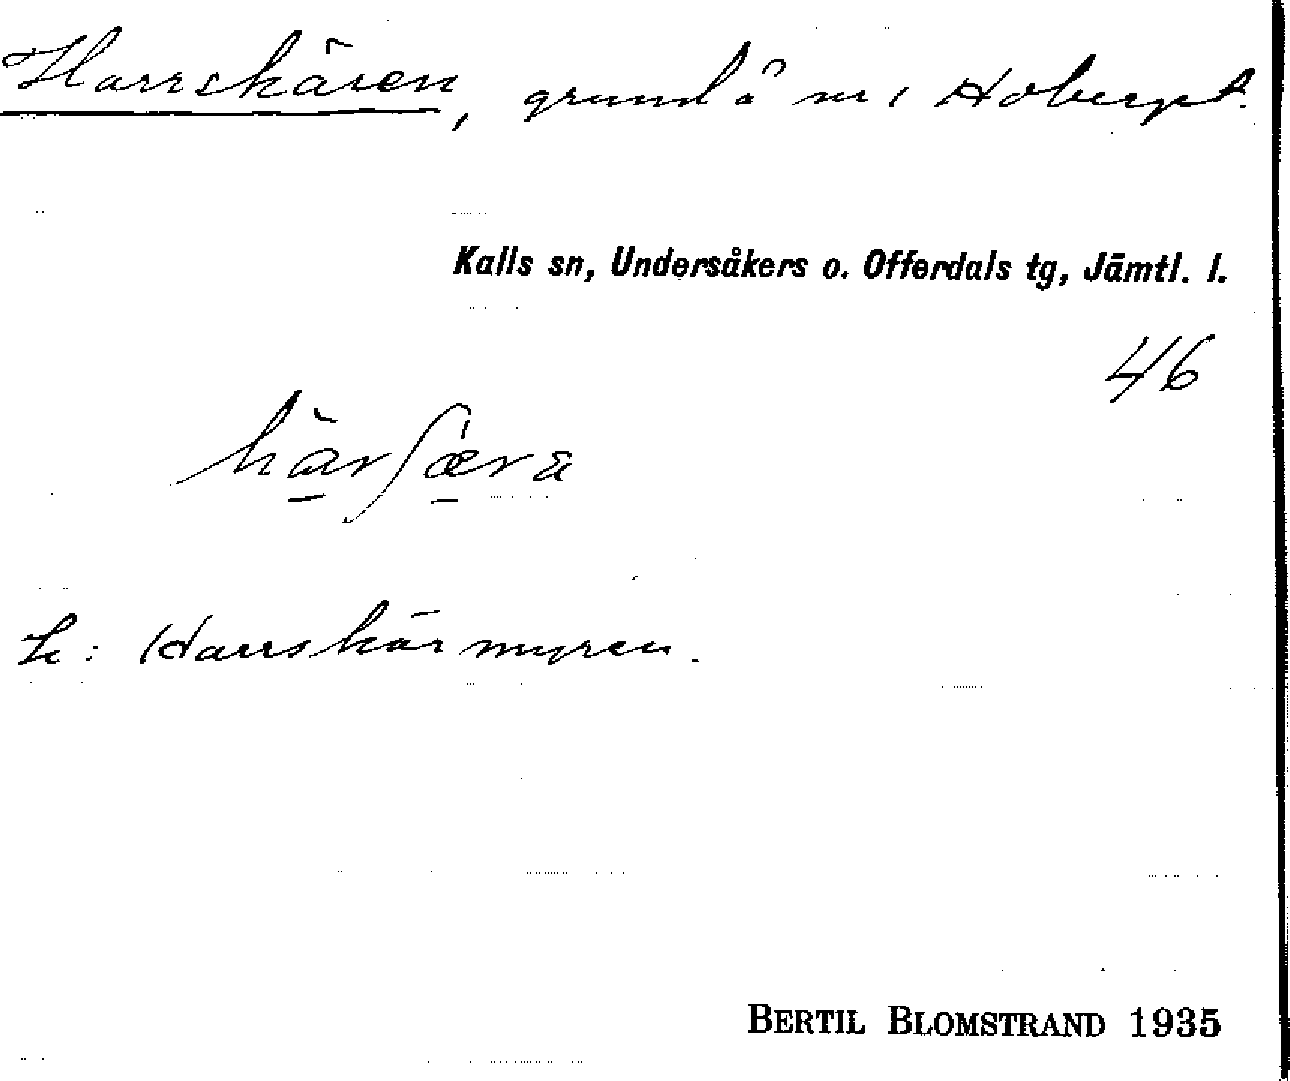 Harrskären, grund å nr 1 Hobergst.
Kalls sn, Undersåkers o. Offerdals tg, Jämtl. l.
46
hàrʃæ̀ra
L: Harrskärmyren.
BERTIL BLOMSTRAND 1935